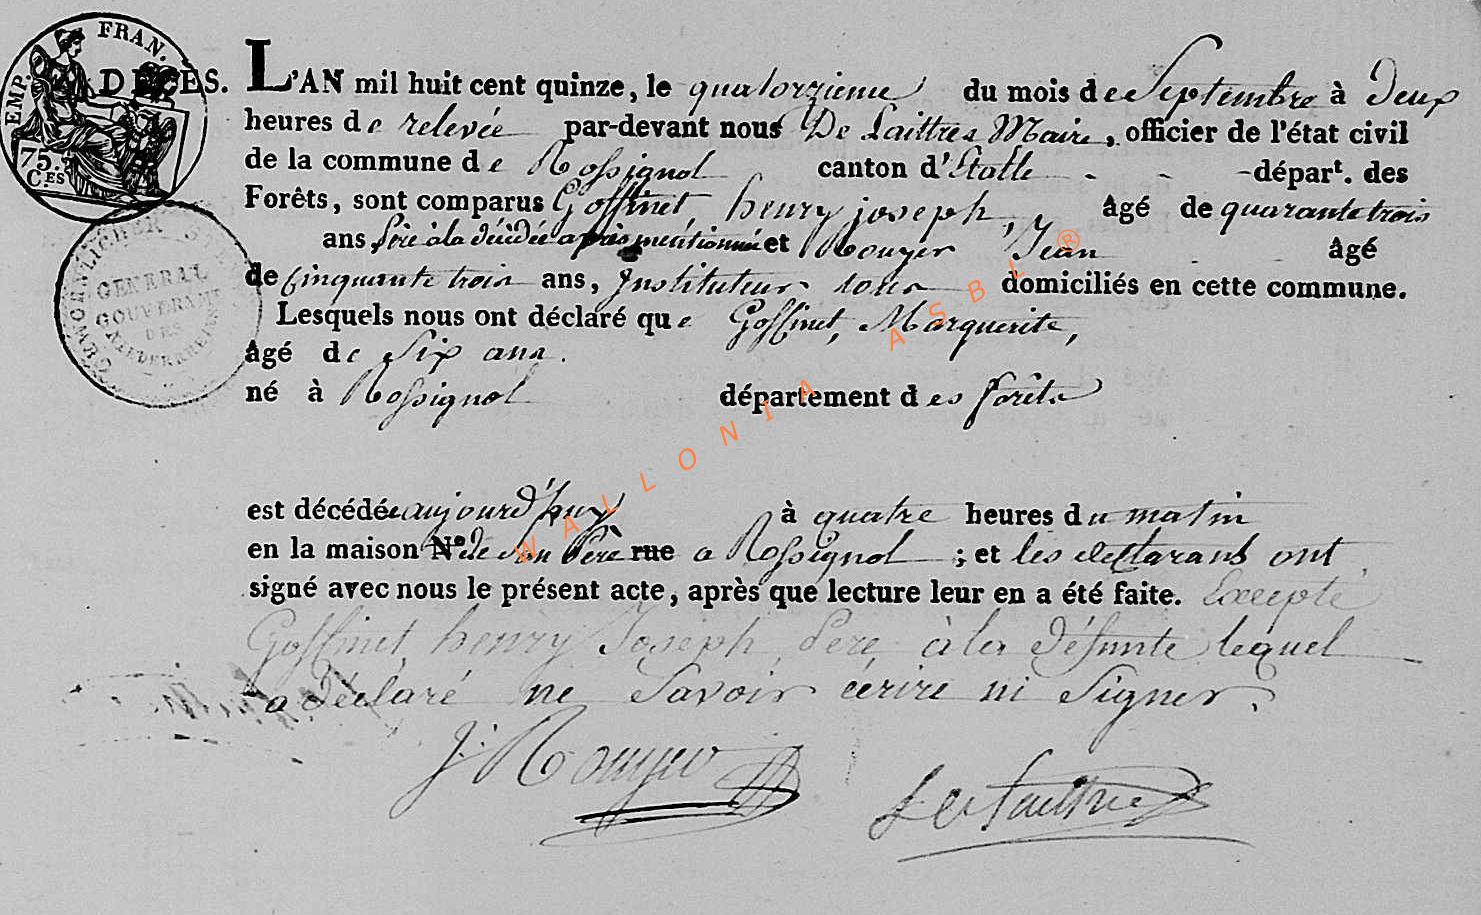 EMP. FRAN.
75.
C.ES
GENERAL
GOUVERNEMENT
DES
NIEDERRHEINS
DÉCÈS. L'AN mil huit cent quinze, le quatorzieme du mois de Septembre à Deux
heures de relevée par-devant nous De Laittres Maire, officier de l'état civil
de la commune de Rossignol canton d'Etalle - - - départ. des
Forêts, sont comparus Goffinet, henry joseph, âgé de quarante trois
ans père à la décédée après mentionnée et Rouyer Jean âgé
de cinquante trois ans, Instituteur tous domiciliés en cette commune.
Lesquels nous ont déclaré que Goffinet, Marguerite,
âgé de Six ans.
né à Rossignol département des forêts
est décédée aujourd'huy à quatre heures du matin
en la maison N° de son Père rue a Rossignol ; et les declarans ont
signé avec nous le présent acte, après que lecture leur en a été faite. Excepté
Goffinet henry Joseph Pere à la défunte lequel
a déclaré ne Savoir écrire ni Signer.
J. Rouyer
De Laittres
WALLONIA ASBL ®